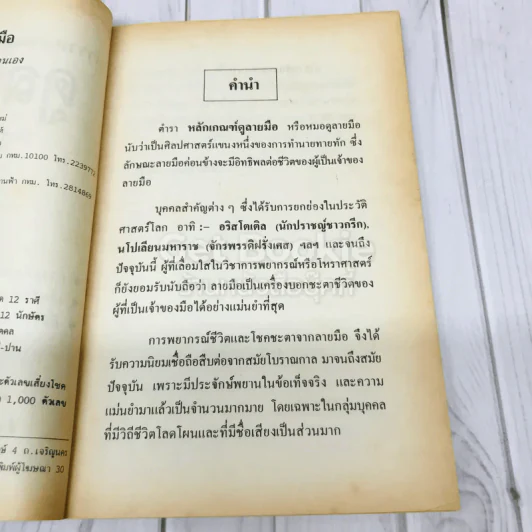 มือ
นเอง
กทม.10100 โทร.2239772
านฟ้า กทม. โทร.2814869
12 ราศี
12 นักษัตร
ะตัวเลขเสี่ยงโชค
1,000 ตัวเลข
4 ถ.เจริญนคร
พิมพ์ผู้โฆษณา 30
คำนำ
ตำรา หลักเกณฑ์ดูลายมือ หรือหมอดูลายมือ
นับว่าเป็นศิลปศาสตร์แขนงหนึ่งของการทำนายทายทัก ซึ่ง
ลักษณะลายมือค่อนข้างจะมีอิทธิพลต่อชีวิตของผู้เป็นเจ้าของ
ลายมือ
บุคคลสำคัญต่าง ๆ ซึ่งได้รับการยกย่องในประวัติ
ศาสตร์โลก อาทิ :– อริสโตเติล (นักปราชญ์ชาวกรีก),
นโปเลียนมหาราช (จักรพรรดิฝรั่งเศส) ฯลฯ และจนถึง
ปัจจุบันนี้ ผู้ที่เลื่อมใสในวิชาการพยากรณ์หรือโหราศาสตร์
ก็ยังยอมรับนับถือว่า ลายมือเป็นเครื่องบอกชะตาชีวิตของ
ผู้ที่เป็นเจ้าของมือได้อย่างแม่นยำที่สุด
การพยากรณ์ชีวิตและโชคชะตาจากลายมือ จึงได้
รับความนิยมเชื่อถือสืบต่อจากสมัยโบราณกาล มาจนถึงสมัย
ปัจจุบัน เพราะมีประจักษ์พยานในข้อเท็จจริง และความ
แม่นยำมาแล้วเป็นจำนวนมากมาย โดยเฉพาะในกลุ่มบุคคล
ที่มีวิถีชีวิตโลดโผนและที่มีชื่อเสียงเป็นส่วนมาก